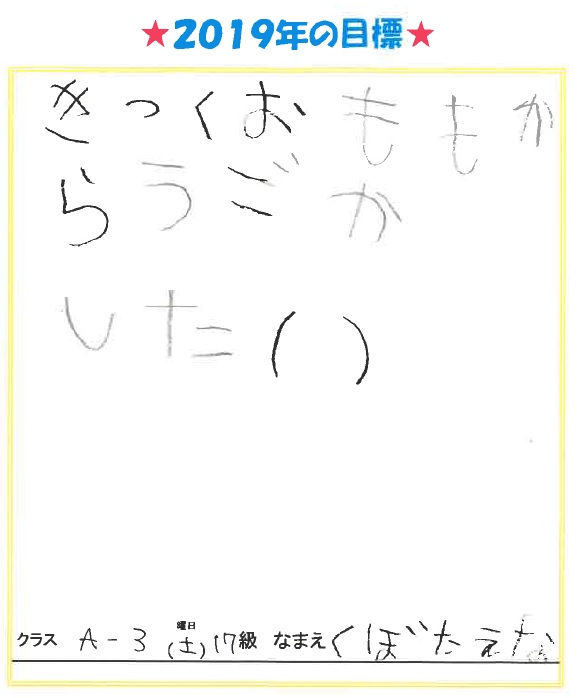 ★2019年の目標★
きっくおももか
らうごか
したい
クラス A-3 曜日(土) 17級 なまえ くぼたえな